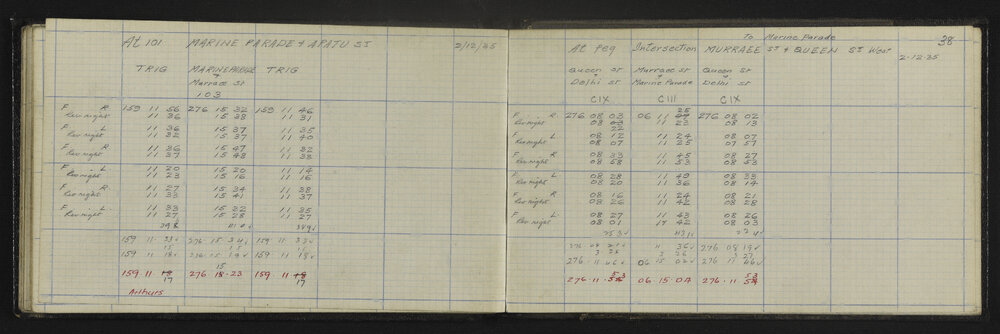 At 101 MARINE PARADE & APATU ST 2/12/35
TRIG MARINE PARADE TRIG
Murrace St
103
F. R 159 11 56 276 15 32 159 11 46
Rev night 11 36 15 38 11 31
F L 11 36 15 37 11 35
Rev night 11 32 15 37 11 40
F R 11 36 15 47 11 32
Rev night 11 37 15 48 11 38
F L 11 20 15 20 11 14
Rev night 11 23 15 16 11 16
F R 11 27 15 34 11 38
Rev night 11 33 15 41 11 37
F L 11 33 15 32 11 35
Rev night 11 27 15 28 11 27
159 11 276 15 159 11
15 15 16
159 11 18 276 15 19 159 11 18
15
159 11 18 276 18 23 159 11 18
17 17
Arthurs
To Marine Parade 38
At Peg Intersection MURRAEE ST & QUEEN ST West
2-12-35
Queen St Murrace St Queen St
Delhi St Marine Parade Delhi St
CIX CIII CIX
25
F R 276 08 03 06 11 276 08 02
Rev night 08 03 11 23 08 13
22
F L 08 12 11 24 08 07
Rev night 08 07 11 25 07 57
F R 08 33 11 45 08 27
Rev night 08 58 11 53 08 53
F L 08 28 11 49 08 33
Rev night 08 20 11 36 08 14
F R 08 16 11 24 08 21
Rev night 08 26 11 42 08 28
F L 08 27 11 43 08 26
Rev night 08 01 17 42 08 03
253
276 08 21 11 36 276 08 19
3 25 3 26 3 27
276 11 46 06 15 02 276 11 46
53 53
276 11 54 06 15 04 276 11 54